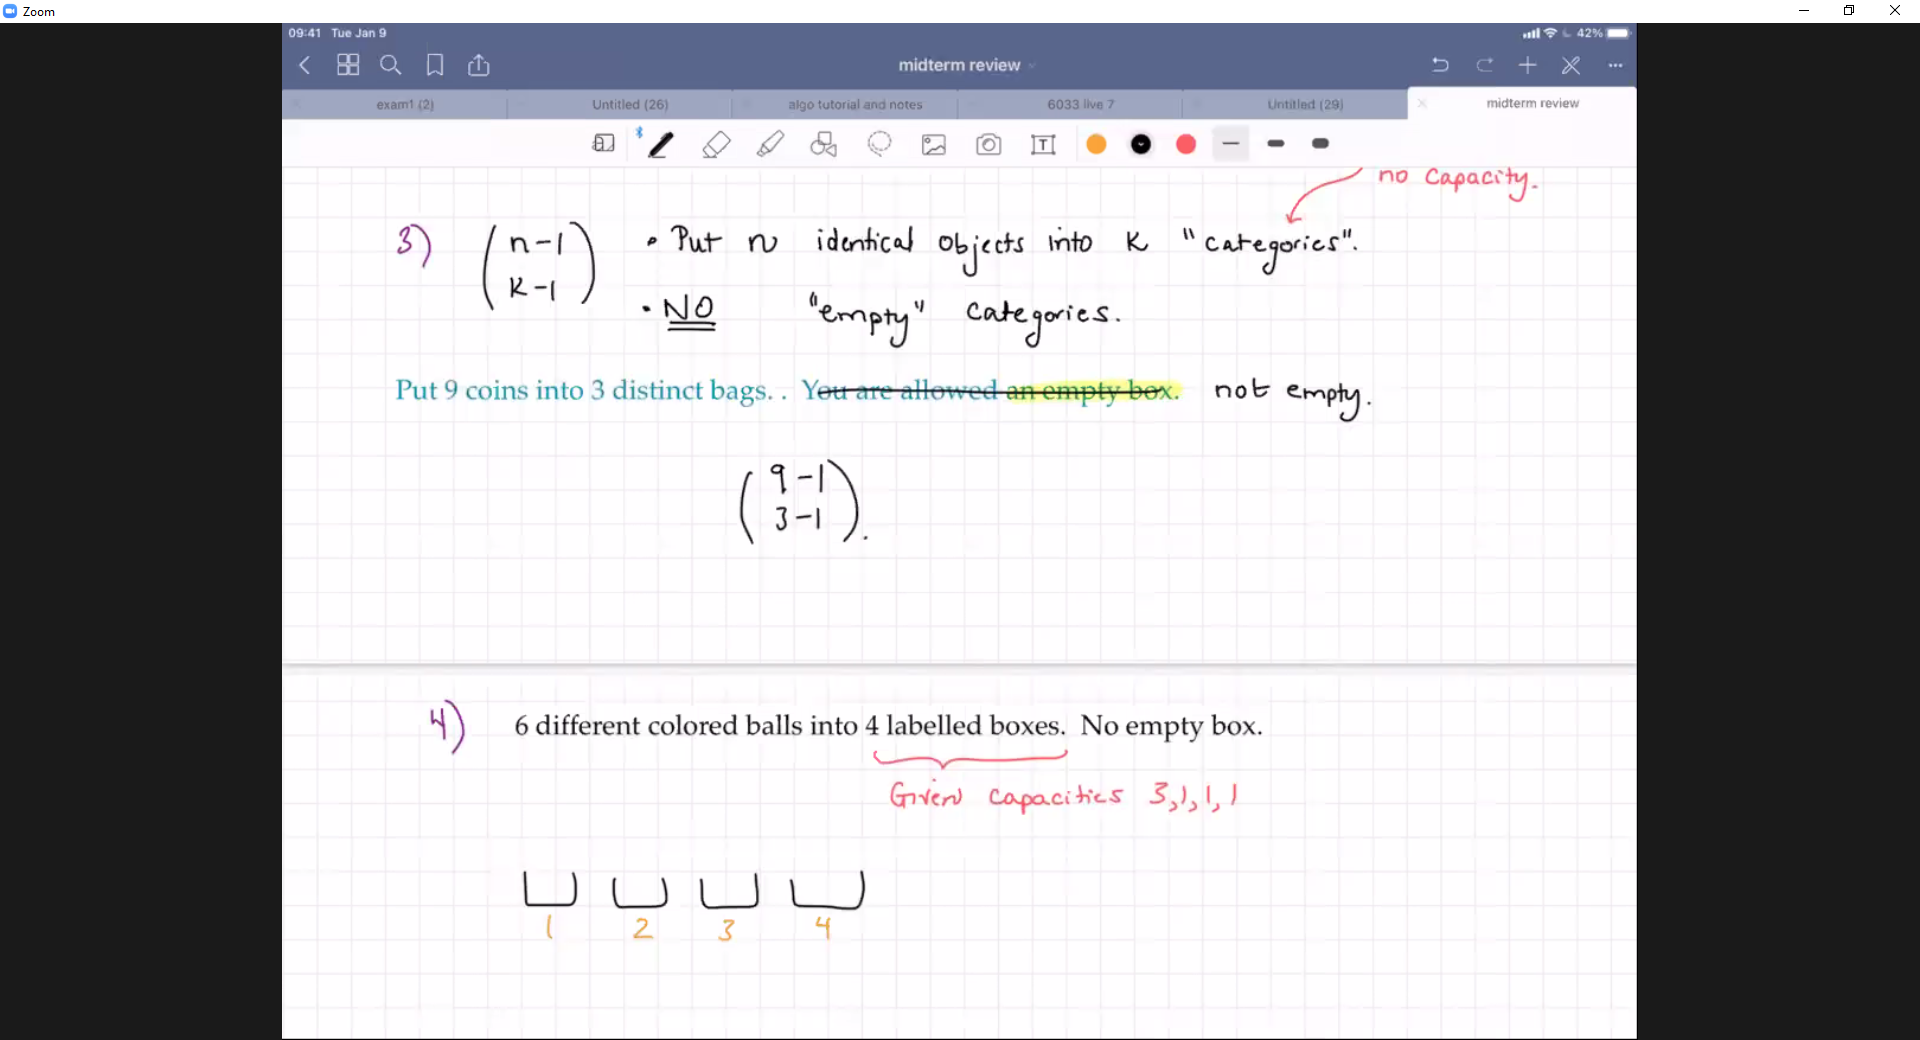 Zoom
09:41 Tue Jan 9
42%
midterm review
exam1 (2) Untitled (26) algo tutorial and notes 6033 live 7 Untitled (29) midterm review
T
no capacity.
3) (n-1 • Put n identical objects into k "categories".
k-1) • NO "empty" categories.
Put 9 coins into 3 distinct bags. . You are allowed an empty box. not empty.
(9-1
3-1).
4) 6 different colored balls into 4 labelled boxes. No empty box.
Given capacities 3,1,1,1
1 2 3 4